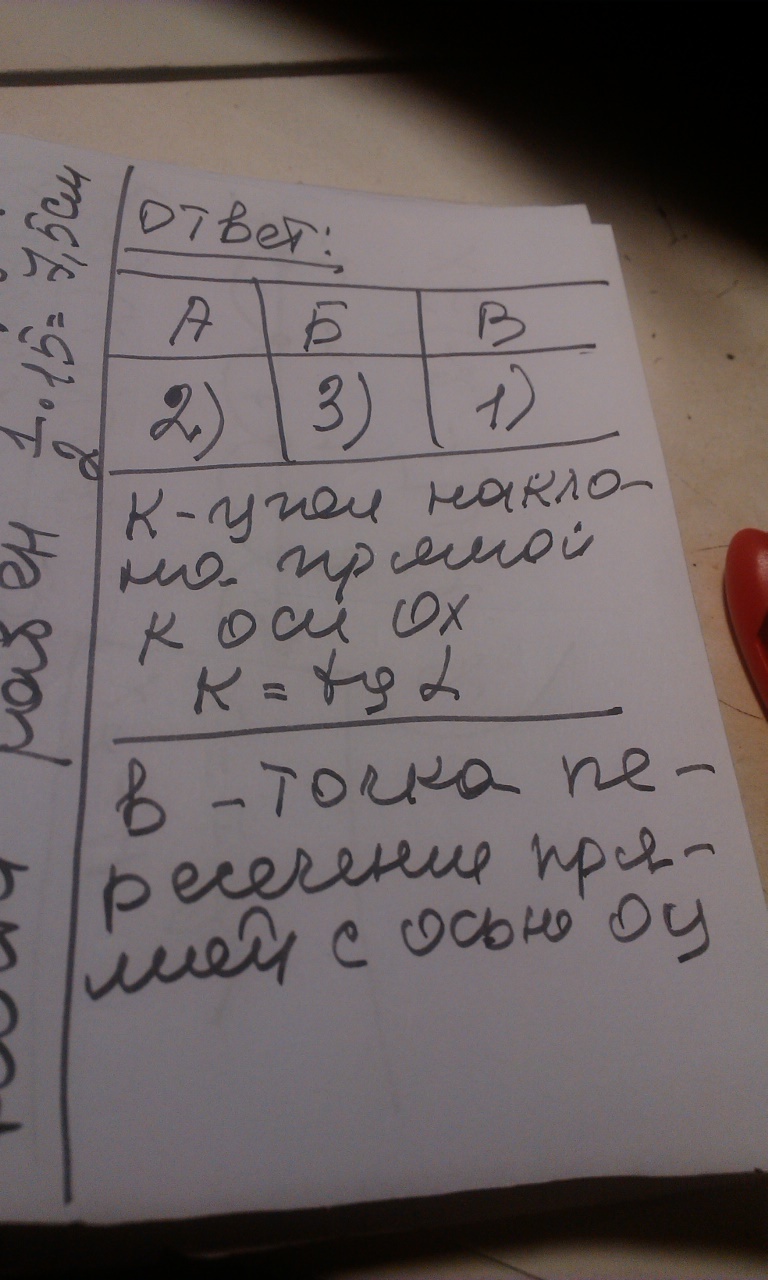 Ответ:
А Б В
2) 3) 1)
к - угол накло-
на прямой
к оси Ох
к = tg α
в - точка пе-
ресечение пря-
мой с осью Оу
1/2 · 15 = 7,5 см